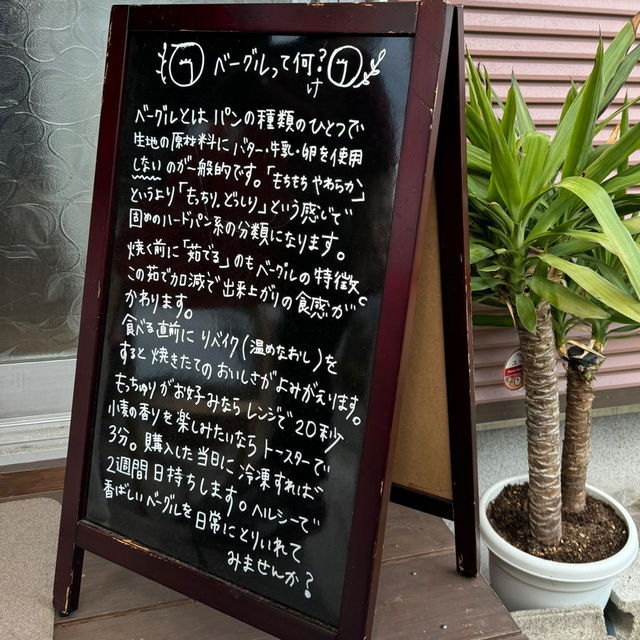 ベーグルって何?
け
ベーグルとは パンの種類のひとつで
生地の原材料に バター・牛乳・卵を使用
しない のが一般的です。「もちもち やわらか」
というより「もっちり、どっしり」という感じで
固めのハードパン系の分類になります。
焼く前に「茹でる」のもベーグルの特徴。
この茹で加減で出来上がりの食感が
かわります。
食べる直前に リベイク(温めなおし)を
すると焼きたてのおいしさがよみがえります。
もちゅりがお好みなら レンジで20秒
小麦の香りを楽しみたいなら トースターで
3分。購入した当日に冷凍すれば
2週間日持ちします。ヘルシーで
香ばしいベーグルを日常にとりいれて
みませんか?